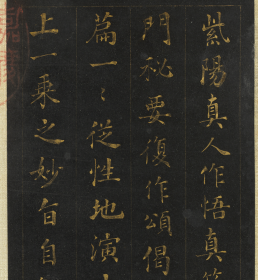 紫陽真人作悟真篇
門秘要復作頌偈
篇一〻從性地演
上一乗之妙旨自